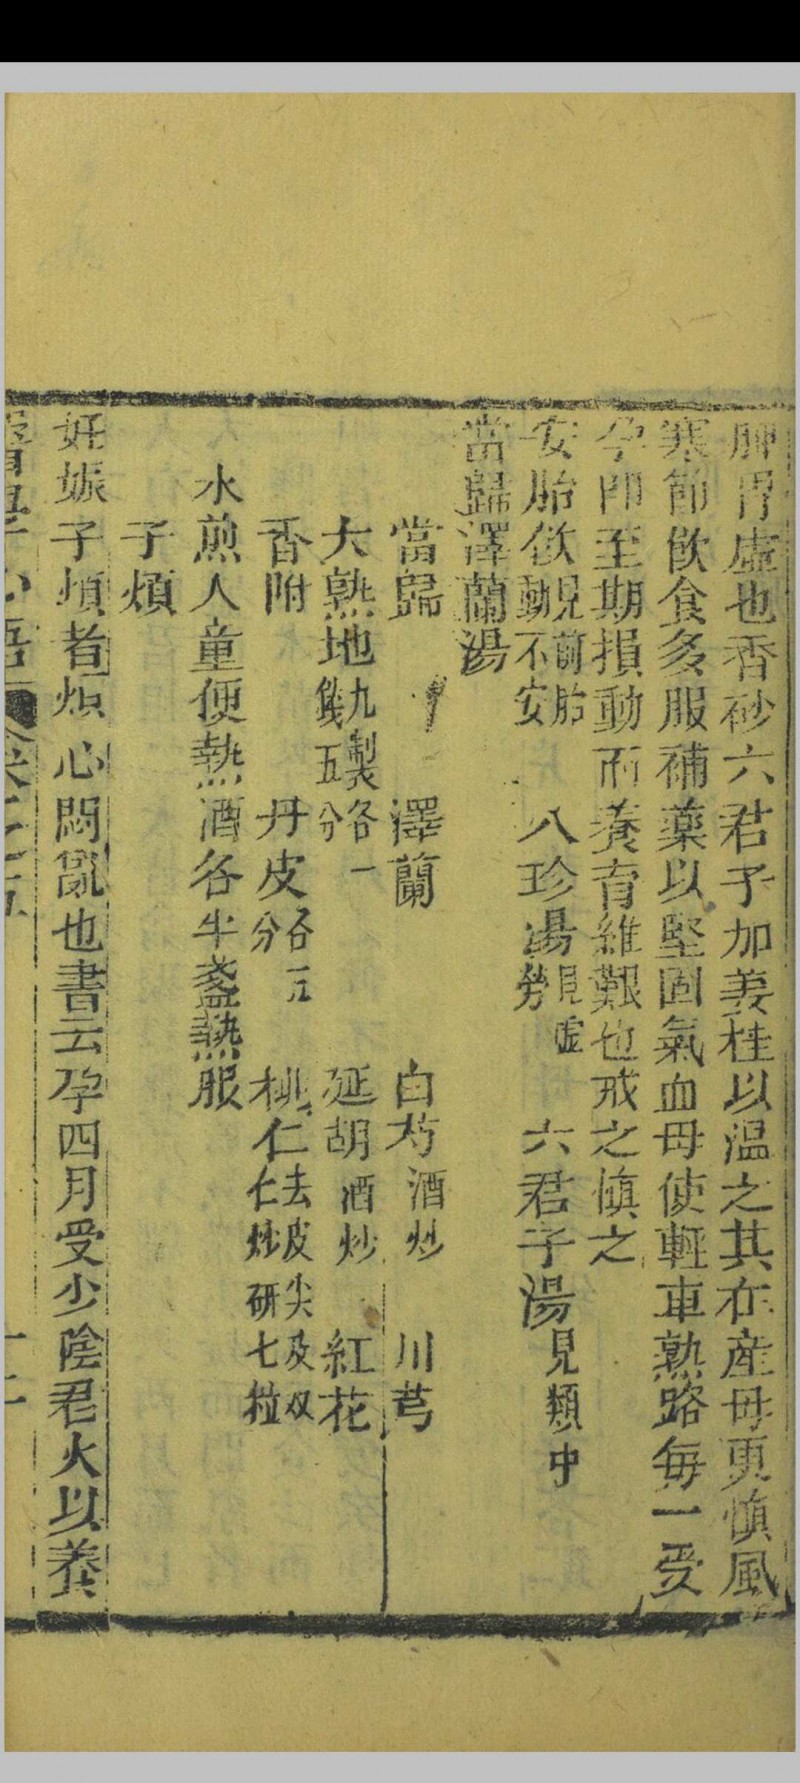 脾胃虛也香砂六君子加姜桂以溫之其在產母更慎風
寒節飲食多服補藥以堅固氣血毋使輕車熟路每一受
孕即至期損動而養育維艱也戒之慎之
安胎飲見前胎動不安 八珍湯見虛勞 六君子湯見類中
當歸澤蘭湯
當歸 澤蘭 白芍酒炒 川芎
大熟地九製各一錢五分 延胡酒炒 紅花
香附 丹皮各五分 桃仁去皮尖及双仁炒研七粒
水煎入童便熱酒各半盞熱服
子煩
妊娠子煩者煩心悶亂也書云孕四月受少陰君火以養
醫學心悟 卷之五